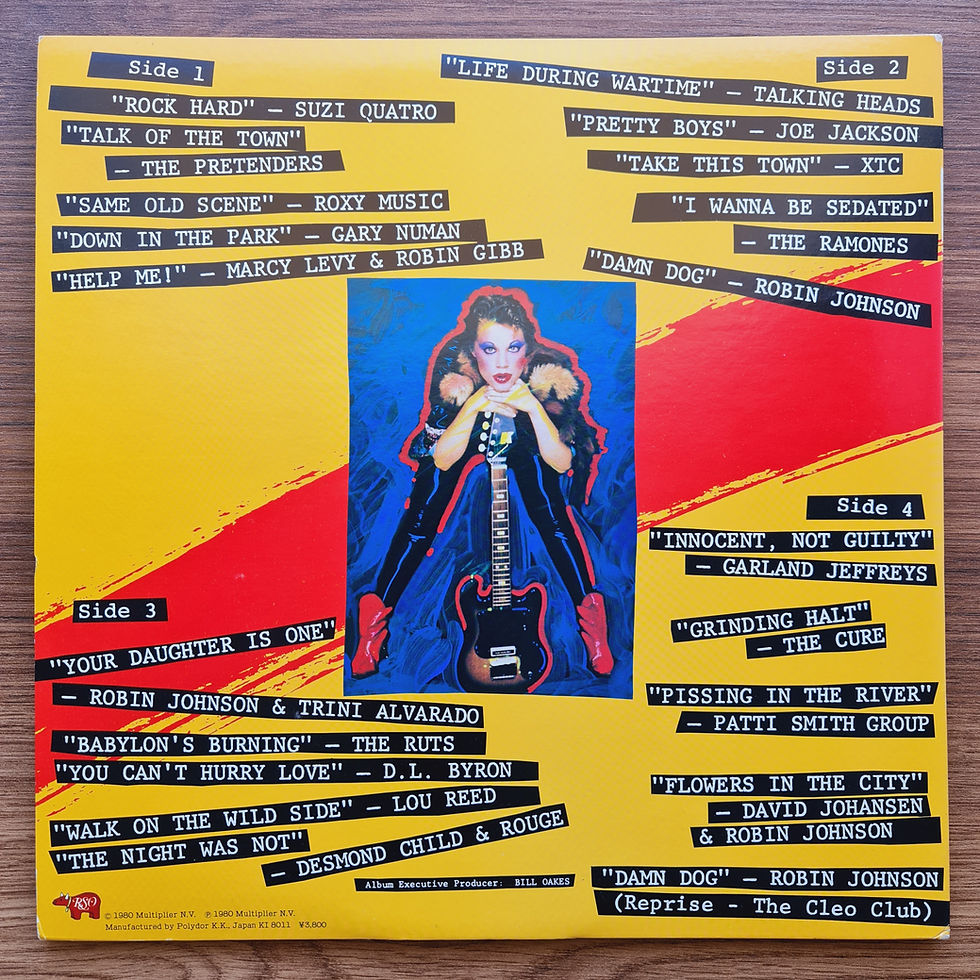 Side 1
"ROCK HARD" — SUZI QUATRO
"TALK OF THE TOWN"
— THE PRETENDERS
"SAME OLD SCENE" — ROXY MUSIC
"DOWN IN THE PARK" — GARY NUMAN
"HELP ME!" — MARCY LEVY & ROBIN GIBB
Side 2
"LIFE DURING WARTIME" — TALKING HEADS
"PRETTY BOYS" — JOE JACKSON
"TAKE THIS TOWN" — XTC
"I WANNA BE SEDATED"
— THE RAMONES
"DAMN DOG" — ROBIN JOHNSON
Side 3
"YOUR DAUGHTER IS ONE"
— ROBIN JOHNSON & TRINI ALVARADO
"BABYLON'S BURNING" — THE RUTS
"YOU CAN'T HURRY LOVE" — D.L. BYRON
"WALK ON THE WILD SIDE" — LOU REED
"THE NIGHT WAS NOT"
— DESMOND CHILD & ROUGE
Side 4
"INNOCENT, NOT GUILTY"
— GARLAND JEFFREYS
"GRINDING HALT"
— THE CURE
"PISSING IN THE RIVER"
— PATTI SMITH GROUP
"FLOWERS IN THE CITY"
— DAVID JOHANSEN
& ROBIN JOHNSON
"DAMN DOG" — ROBIN JOHNSON
(Reprise - The Cleo Club)
Album Executive Producer: BILL OAKES
RSO
© 1980 Multiplier N.V. ℗ 1980 Multiplier N.V.
Manufactured by Polydor K.K., Japan KI 8011 ¥3,800